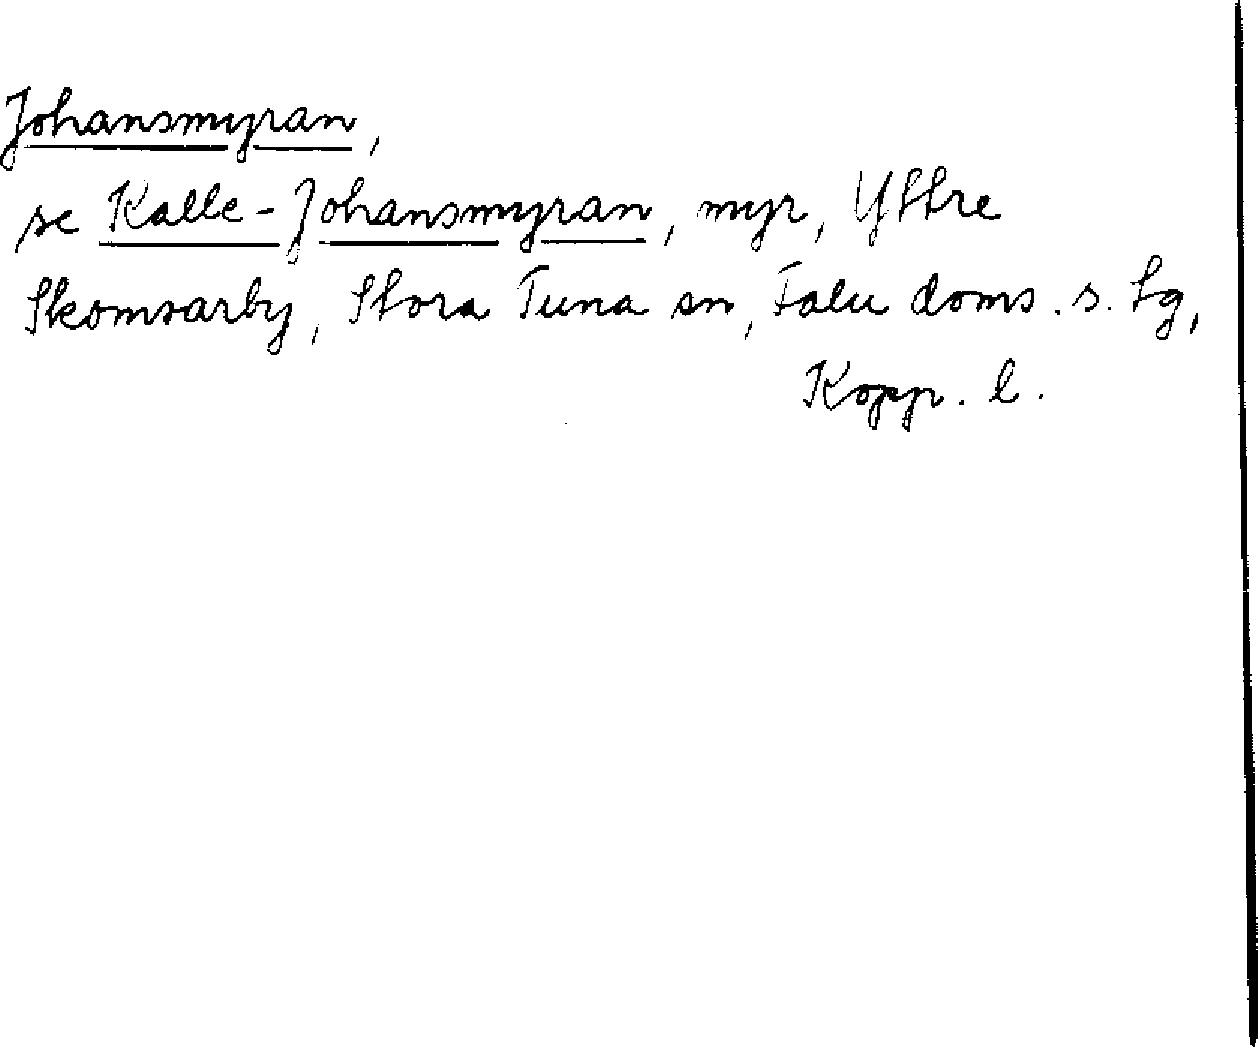 Johansmyran,
se Kalle-Johansmyran, myr, Yttre
Skomsarby, Stora Tuna sn, Falu doms. s. tg,
Kopp. l.